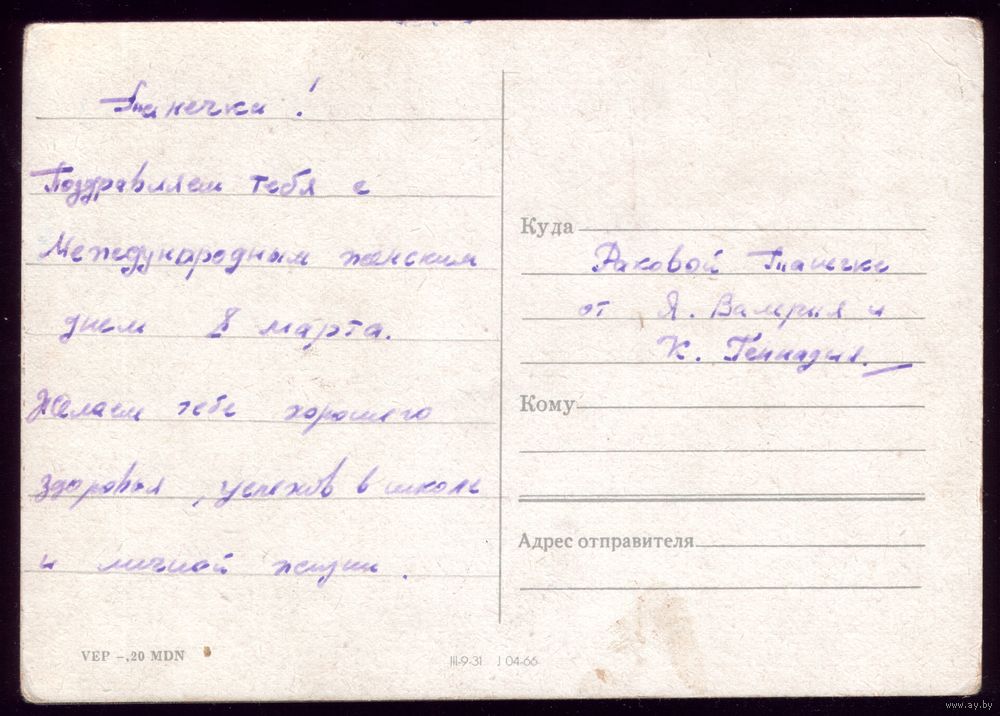 Танечка!
Поздравляем тебя с
Международным женским
днем 8 марта.
Желаем тебе хорошего
здоровья, успехов в школе
и личной жизни.
VEP -,20 MDN
III-9-31 J 04-66
Куда
Раковой Танечке
от Я. Валерия и
К. Геннадия.
Кому
Адрес отправителя
www.ay.by